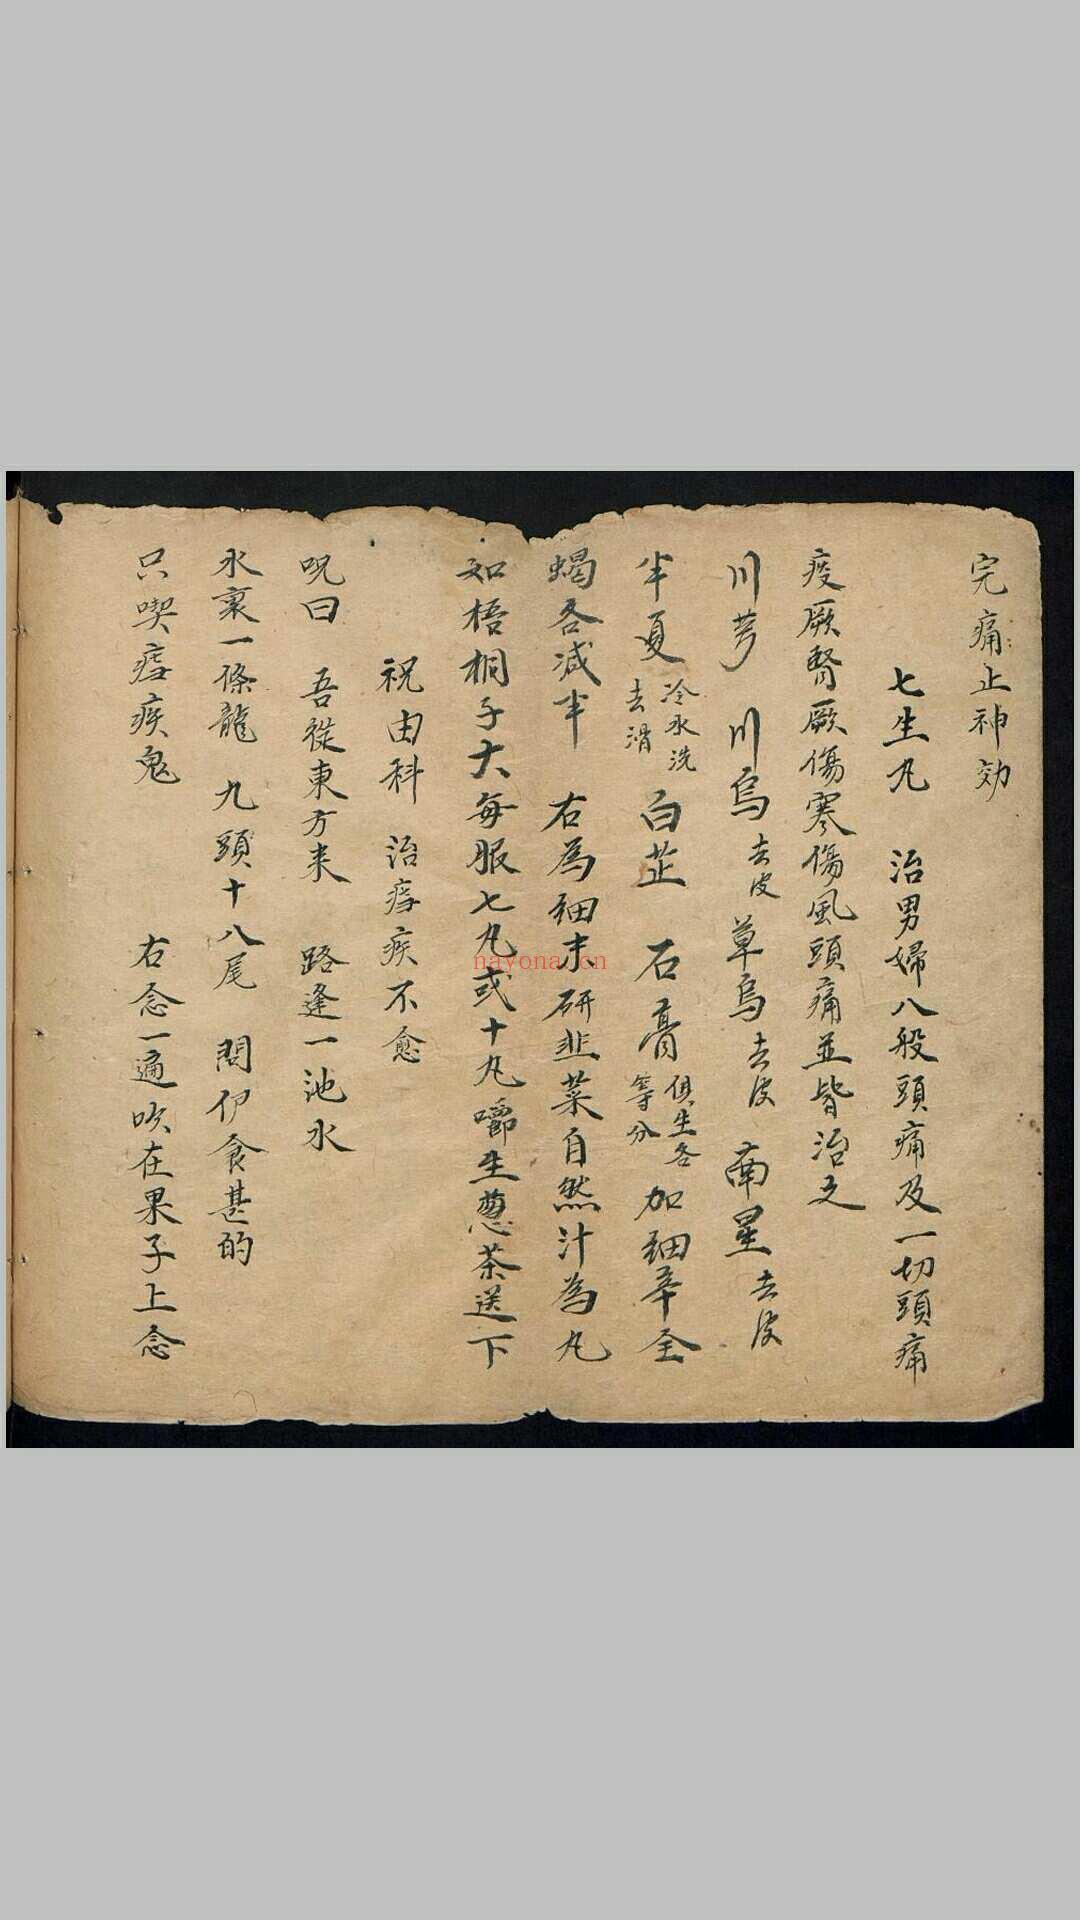 完痛止神効
七生丸　治男婦八般頭痛及一切頭痛
痰厥腎厥傷寒傷風頭痛並皆治之
川芎　川烏去皮 草烏去皮　南星去皮
半夏冷水洗去滑 白芷　石膏俱生各等分 加細辛全
蝎各減半　右為細末研韭菜自然汁為丸
如梧桐子大每服七丸或十丸嚼生蔥茶送下
祝由科　治瘧疾不愈
呪曰　吾從東方来　路逢一池水
水裏一條龍　九頭十八尾　問伊食甚的
只喫瘧疾鬼　右念一遍吹在果子上念
nayona.cn